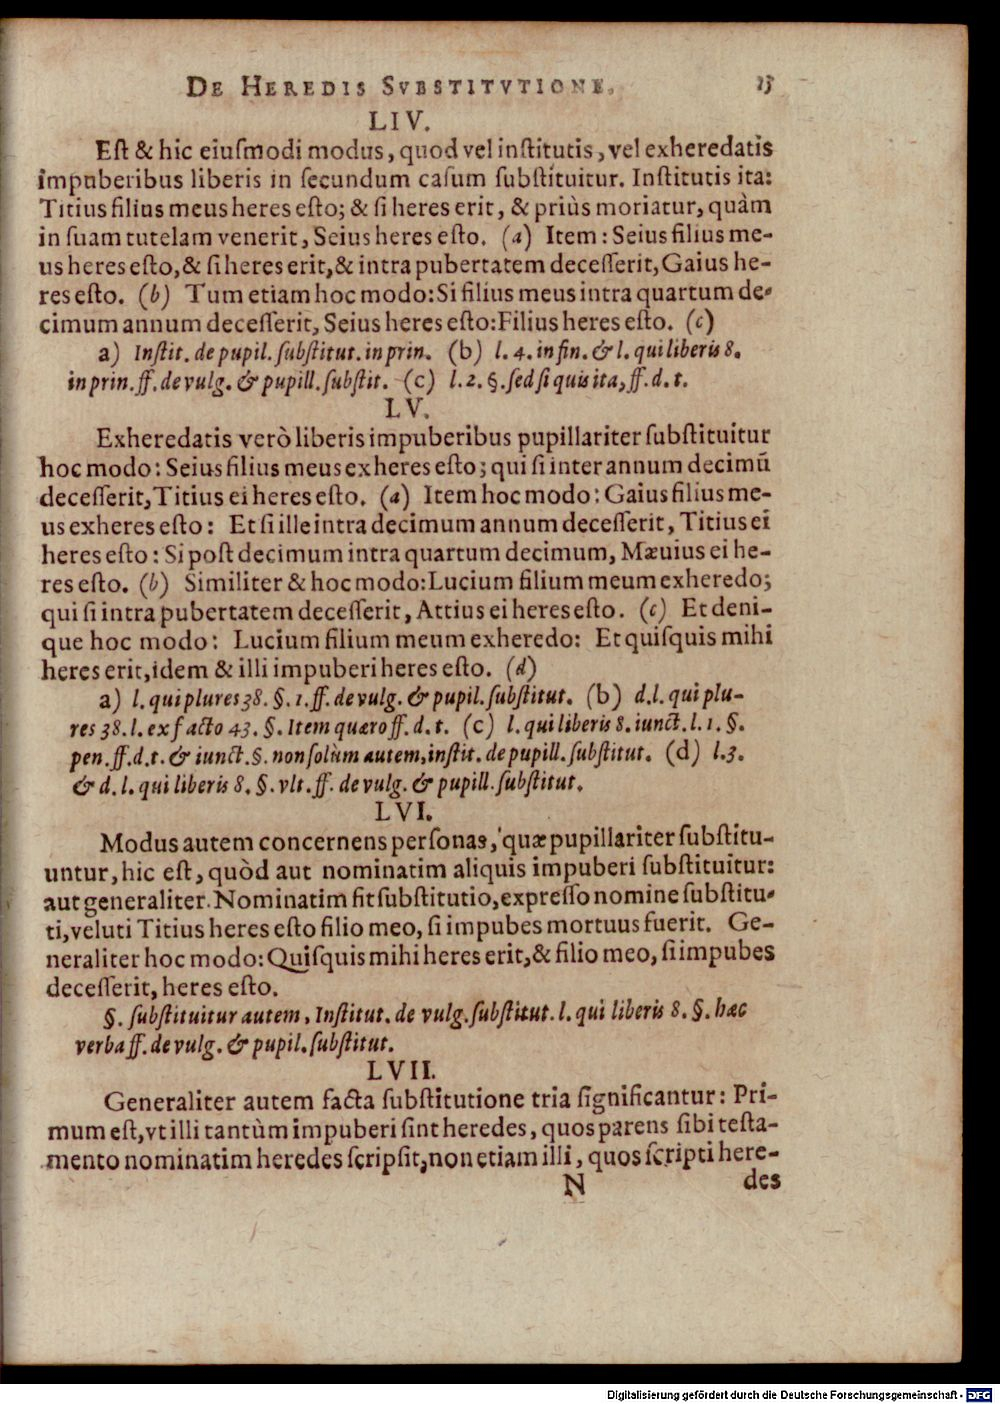 DE HEREDIS SVBSTITVTIONE. 15
LIV.
Est & hic eiuſmodi modus, quod vel inſtitutis, vel exheredatis
impuberibus liberis in ſecundum caſum ſubſtituitur. Inſtitutis ita:
Titius filius meus heres eſto; & ſi heres erit, & priùs moriatur, quàm
in ſuam tutelam venerit, Seius heres eſto. (a) Item: Seius filius me-
us heres eſto, & ſi heres erit, & intra pubertatem deceſſerit, Gaius he-
res eſto. (b) Tum etiam hoc modo: Si filius meus intra quartum de-
cimum annum deceſſerit, Seius heres eſto: Filius heres eſto. (c)
a) Inſtit. de pupil. ſubſtitut. in prin. (b) l. 4. in fin. & l. qui liberis 8.
in prin. ff. de vulg. & pupill. ſubſtit. (c) l. 2. §. ſed ſi quis ita, ff. d. t.
LV.
Exheredatis verò liberis impuberibus pupillariter ſubſtituitur
hoc modo: Seius filius meus exheres eſto; qui ſi inter annum decimũ
deceſſerit, Titius ei heres eſto. (a) Item hoc modo: Gaius filius me-
us exheres eſto: Et ſi ille intra decimum annum deceſſerit, Titius ei
heres eſto: Si poſt decimum intra quartum decimum, Mævius ei he-
res eſto. (b) Similiter & hoc modo: Lucium filium meum exheredo;
qui ſi intra pubertatem deceſſerit, Attius ei heres eſto. (c) Et deni-
que hoc modo: Lucium filium meum exheredo: Et quiſquis mihi
heres erit, idem & illi impuberi heres eſto. (d)
a) l. qui plures 38. §. 1. ff. de vulg. & pupil. ſubſtitut. (b) d. l. qui plu-
res 38. l. ex facto 43. §. Item quæro ff. d. t. (c) l. qui liberis 8. iunct. l. 1. §.
pen. ff. d. t. & iunct. §. non ſolùm autem, inſtit. de pupill. ſubſtitut. (d) l. 3.
& d. l. qui liberis 8. §. vlt. ff. de vulg. & pupill. ſubſtitut.
LVI.
Modus autem concernens perſonas, quæ pupillariter ſubſtitu-
untur, hic eſt, quòd aut nominatim aliquis impuberi ſubſtituitur:
aut generaliter. Nominatim fit ſubſtitutio, expreſſo nomine ſubſtitu-
ti, veluti Titius heres eſto filio meo, ſi impubes mortuus fuerit. Ge-
neraliter hoc modo: Quiſquis mihi heres erit, & filio meo, ſi impubes
deceſſerit, heres eſto.
§. ſubſtituitur autem, Inſtitut. de vulg. ſubſtitut. l. qui liberis 8. §. hæc
verba ff. de vulg. & pupil. ſubſtitut.
LVII.
Generaliter autem facta ſubſtitutione tria ſignificantur: Pri-
mum eſt, vt illi tantùm impuberi ſint heredes, quos parens ſibi teſta-
mento nominatim heredes ſcripſit, non etiam illi, quos ſcripti here-
N des
Digitalisierung gefördert durch die Deutsche Forschungsgemeinschaft - DFG